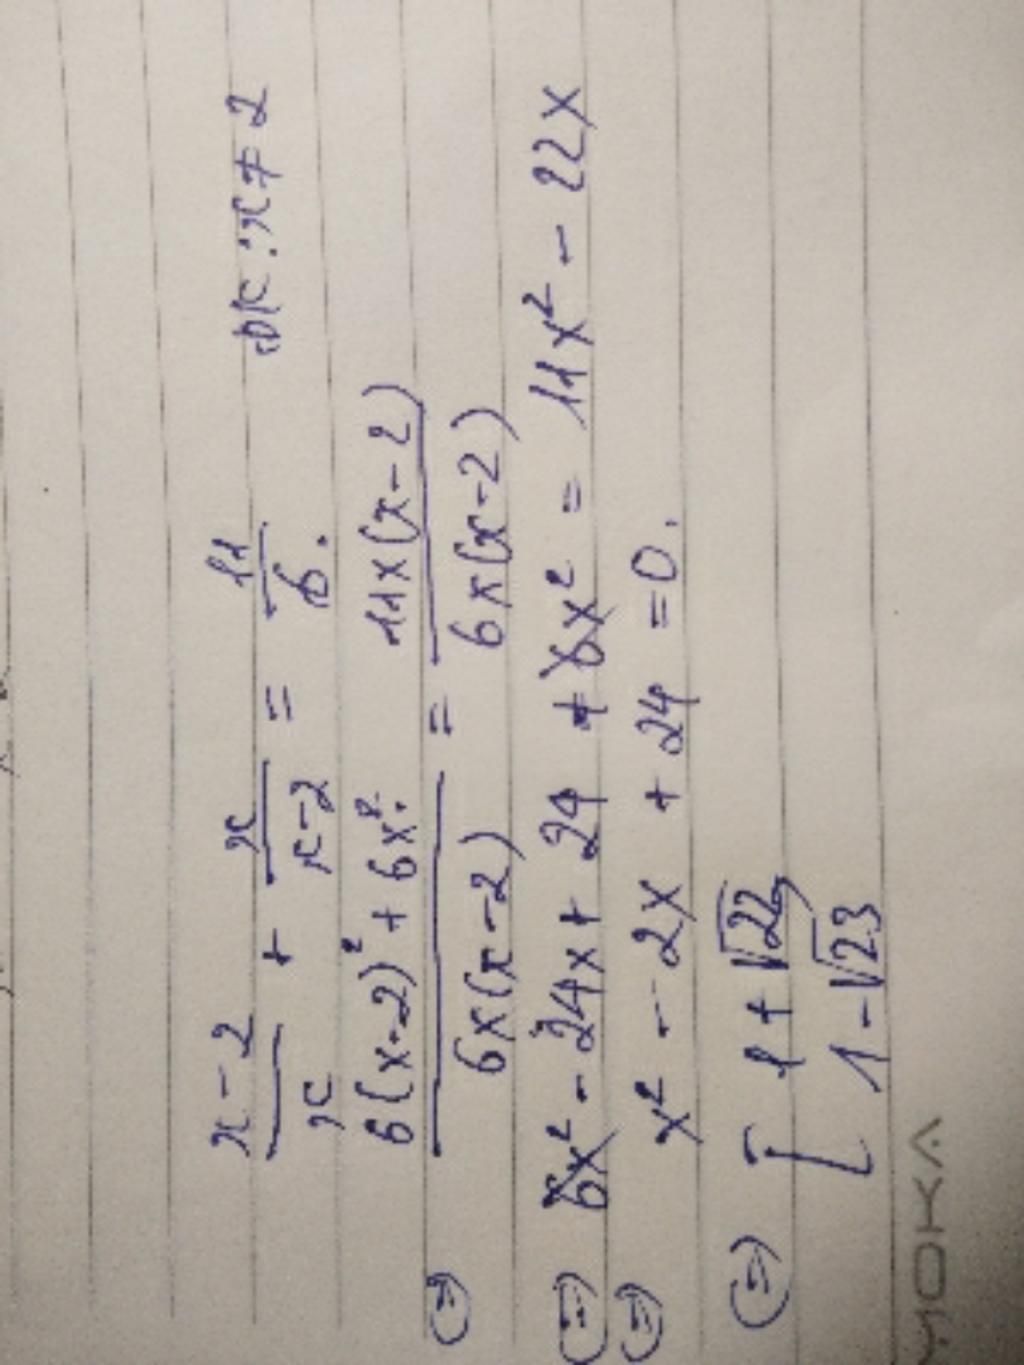 x - 2 / x + x / x - 2 = 11 / 6. ĐK : x ≠ 2
(=) 6(x - 2)² + 6x² / 6x(x - 2) = 11x(x - 2) / 6x(x - 2)
(=) 6x² - 24x + 24 + 6x² = 11x² - 22x
(=) x² - 2x + 24 = 0.
(=) [ 1 + √22
1 - √23
MOKA